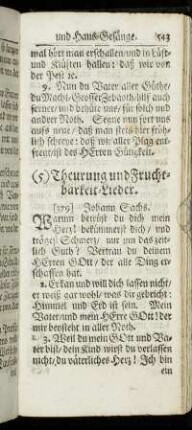 und Haus-Gesänge. 543
wal hört man erschallen/ und in Lüfft-
und Klüfften hallen: daß wir von
der Pest ꝛc.
9. Nun du Vater aller Güthe/
du Macht-Grosser Zebaoth/ hilf auch
ferner/ und behüte uns/ für solch und
andrer Noth. Segne nun fort uns
aufs neue/ daß man stets hier fröh-
lich schreye: daß wir aller Plag ent-
freyt/ ist des HErren Gütigkeit.
(5) Theurung und Frucht-
barkeit-Lieder.
[279] Johann Sachs.
Warum betrübst du dich mein
Hertz/ bekümmerst dich/ und
trägest Schmertz/ nur um das zeit-
lich Guth? Vertrau du deinem
HErren GOtt/ der alle Ding er-
schaffen hat.
2. Er kan und will dich lassen nicht/
er weiß gar wohl/ was dir gebricht:
Himmel und Erd ist sein. Mein
Vater/ und mein HErre GOtt/ der
mir beysteht in aller Noth.
3. Weil du mein GOtt und Va-
ter bist/ dein Kind wirst du verlassen
nicht/ du väterliches Hertz! Ich bin
ein